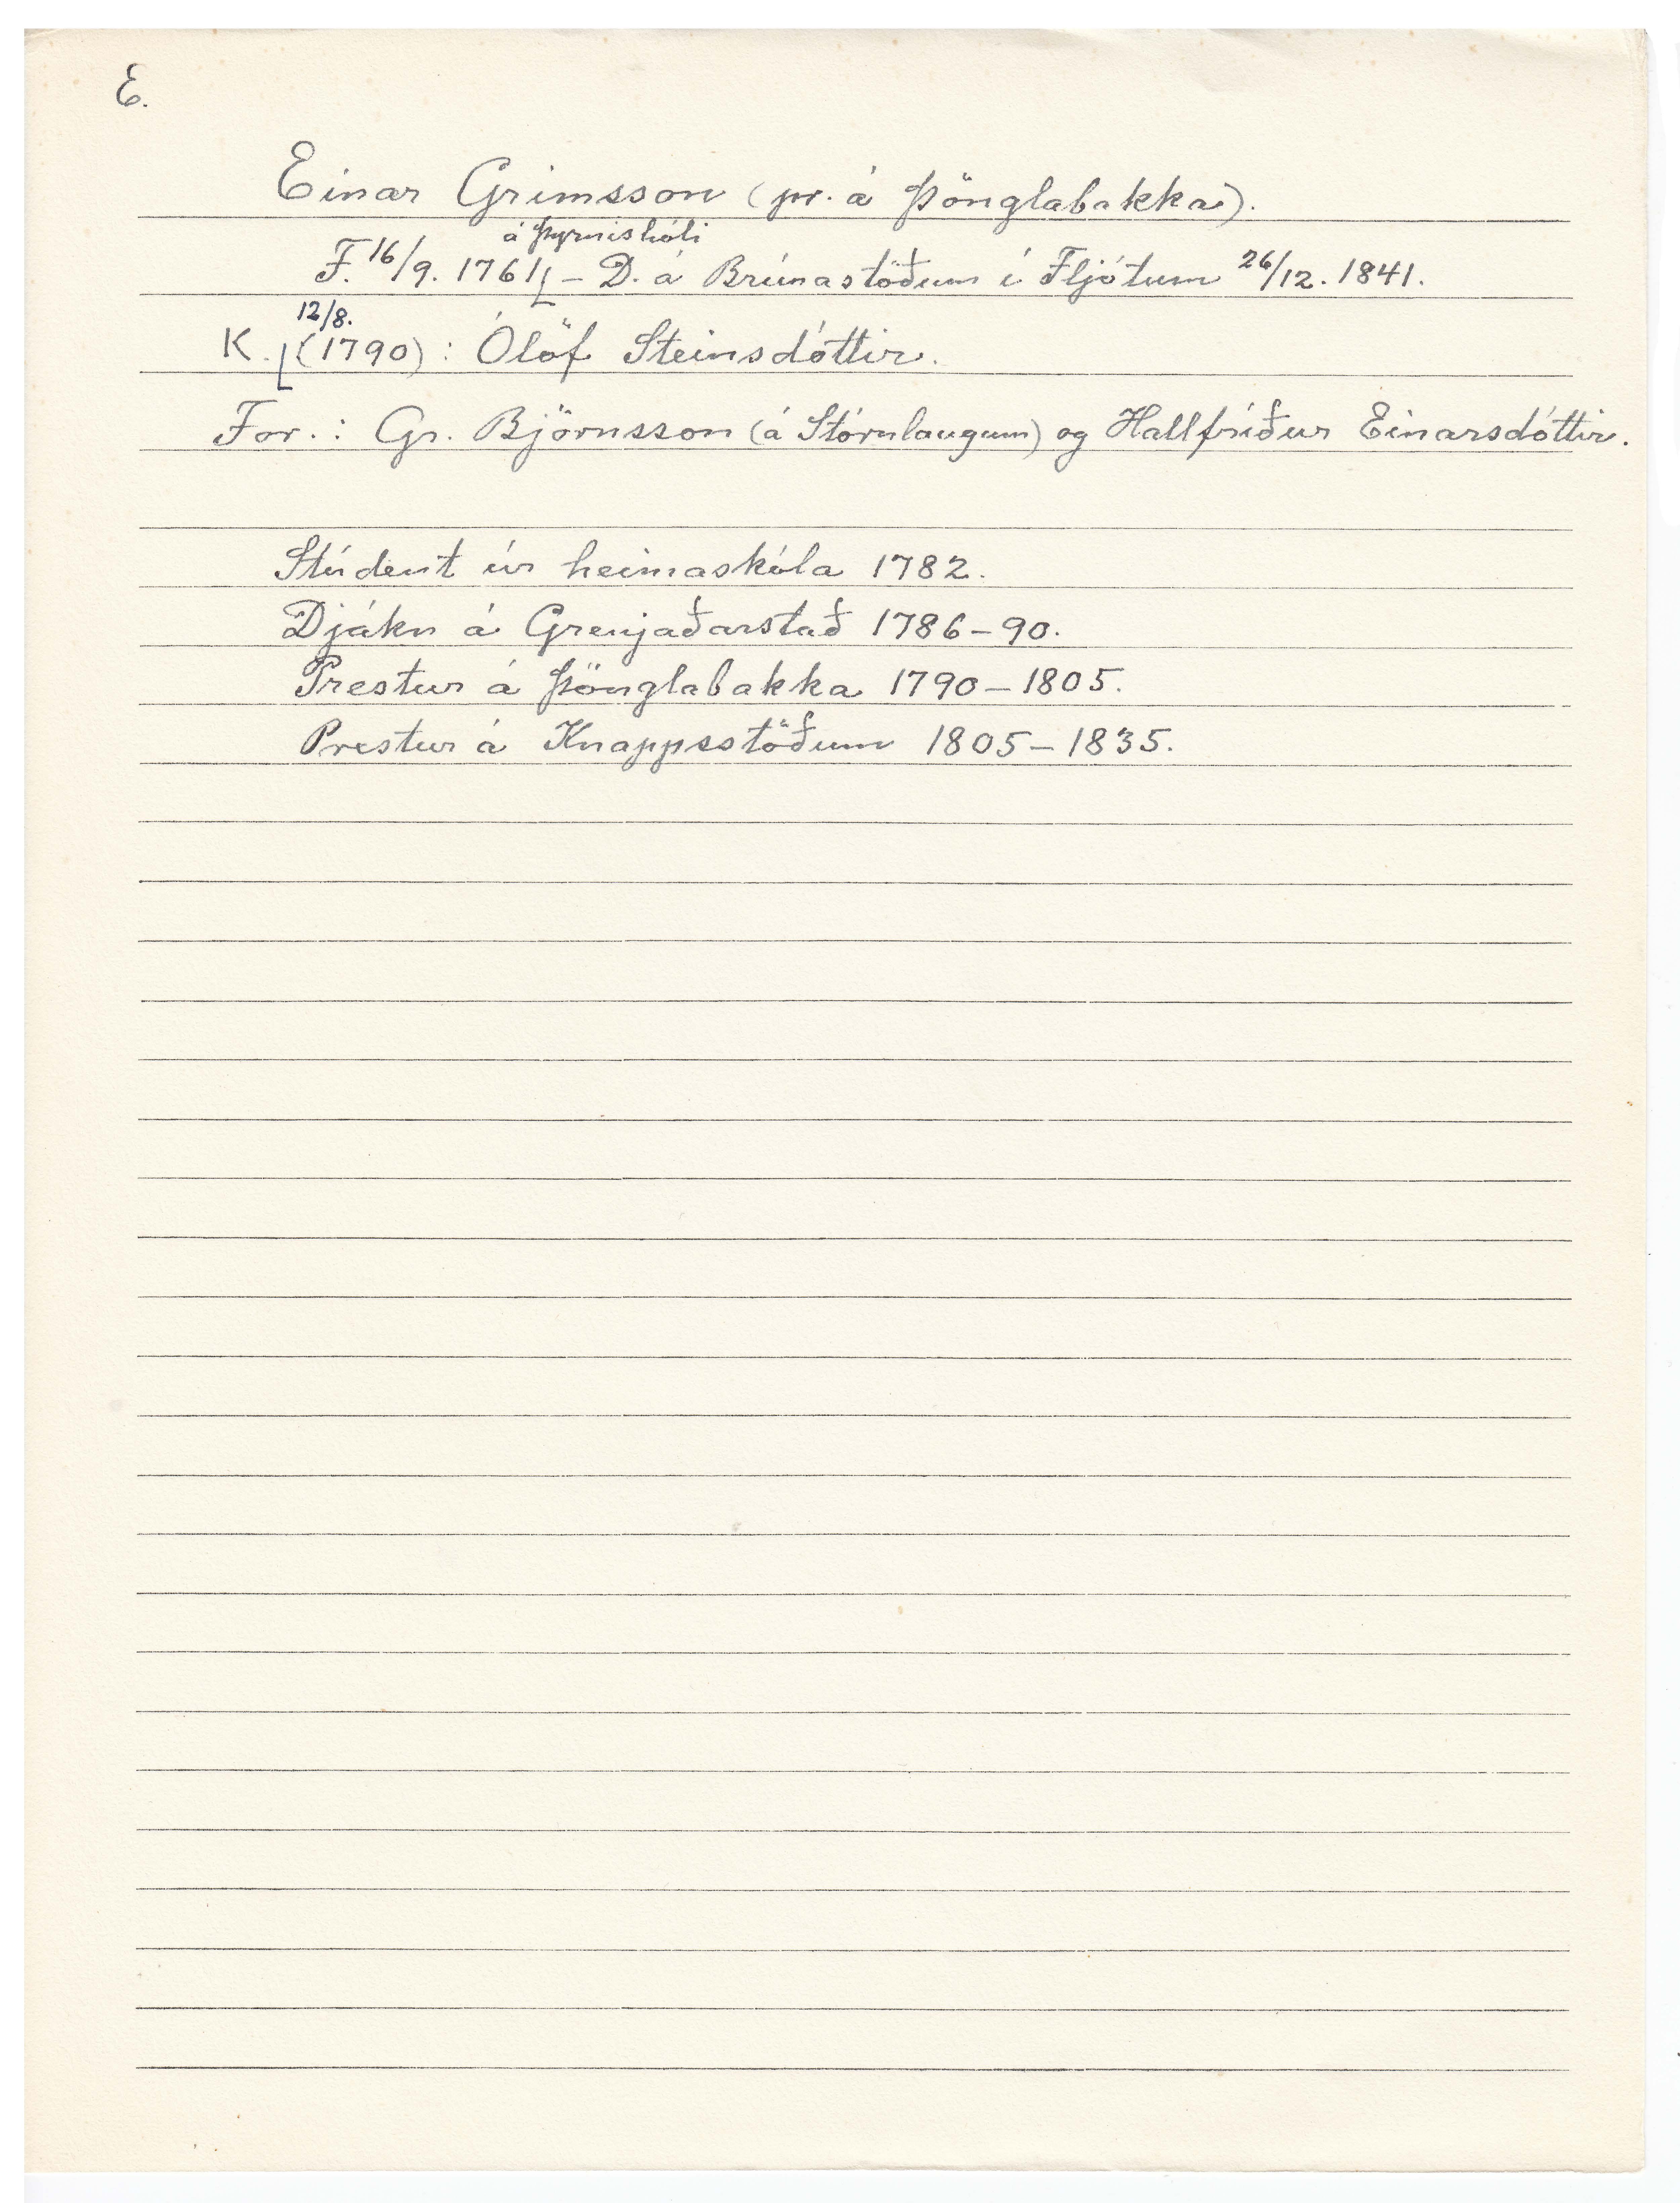 E.
Einar Grímsson (pr. á Þönglabakka).
á Þyrnishóli
F. 16/9. 1761 – D. á Brúnastöðum í Fljótum 26/12. 1841.
12/8.
K. (1790) : Ólöf Steinsdóttir.
For. : Gr. Björnsson (á Stórulaugum) og Hallfríður Einarsdóttir.
Stúdent úr heimaskóla 1782.
Djákn á Grenjaðarstað 1786–90.
Prestur á Þönglabakka 1790–1805.
Prestur á Knappsstöðum 1805–1835.